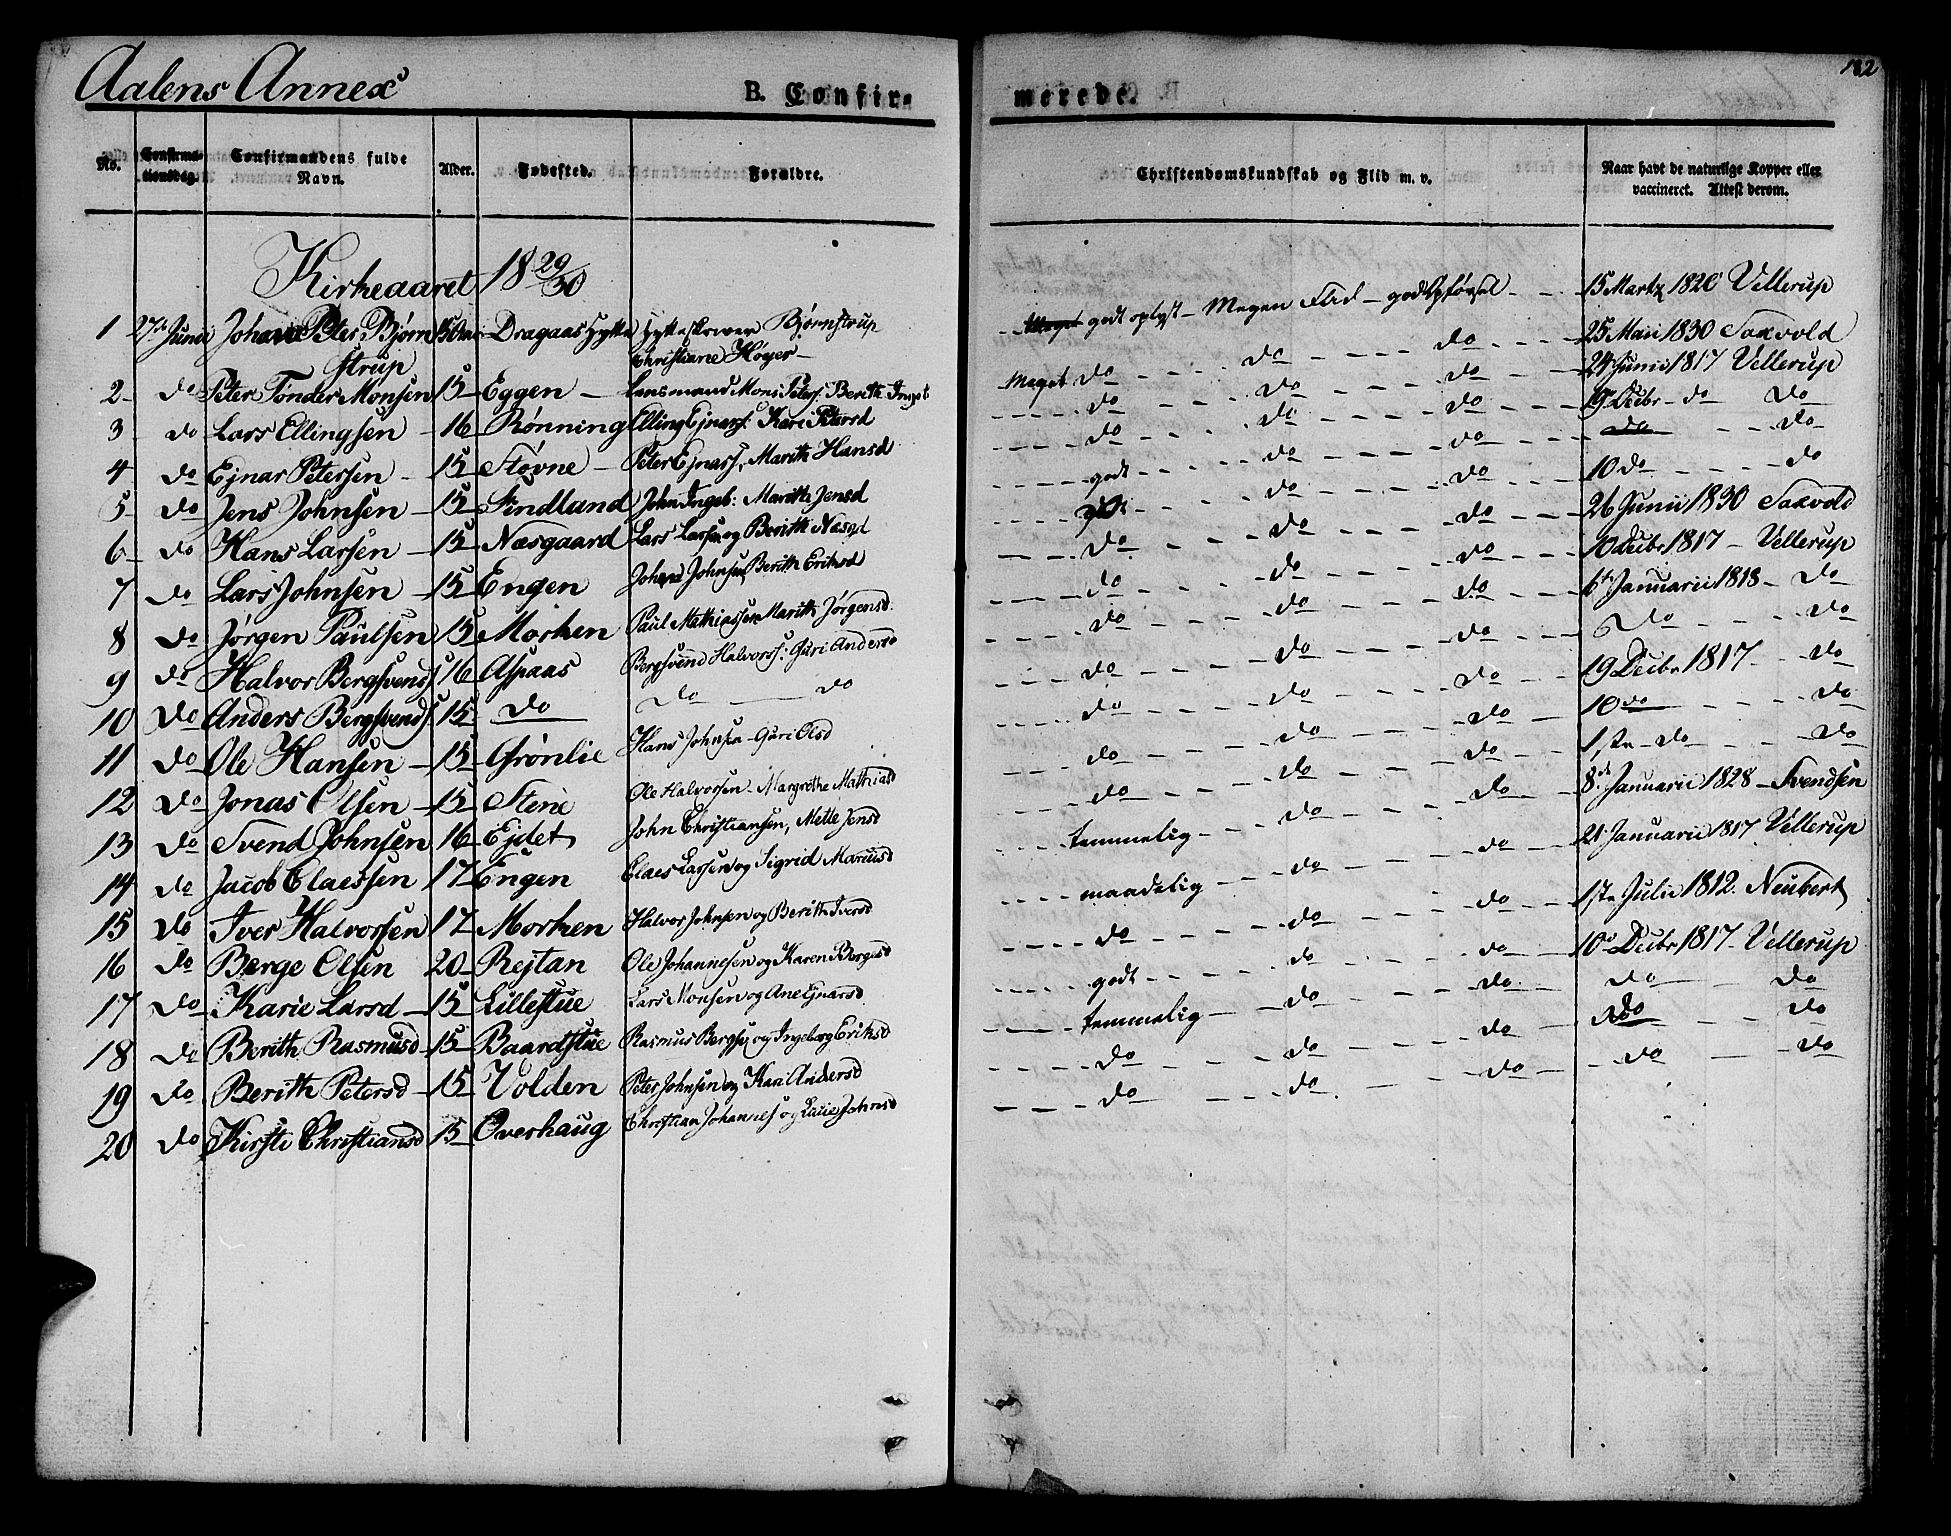 Aalens Annex
B. Confir-
merede.
182
No.
Confirma-
tionsdag.
Confirmandens fulde
Navn.
Alder.
Fødested.
Forældre.
Christendomskundskab og Flid m. v.
Naar havt de naturlige Kopper eller
vaccineret. Attest derom.
Kirkeaaret 18 29/30
1 27de Junii Johan Peter Bjørn- 15 Dragaas Hytte Hytteskriver Bjørnstrup godt oplyst - Megen Flid - god Opførsel - 15 Martz 1820 Vellerup
strup Christiane Høyer -
2 do Peter Tønder Monsen 15 Eggen - Lensmand Mons Peters. Berith Meget do do do 25 Mai 1830 Saxvold
3 do Lars Ellingsen - 16 Rønning Elling Ejnars: Kari Petersd do do do 24 Junii 1817 Vellerup
4 do Ejnar Petersen - 15 Støvne - Peter Ejnars, Marith Hansd do do do 19 Decbr - do do
5 do Jens Johnsen - 15 Findland John Ingeb: Marith Jensd godt do do do do
6 do Hans Larsen - 15 Næsgaard Lars Larsen og Berith do do 10 do do
7 do Lars Johnsen - 15 Engen Johnsen Berith Eriksd do do do 26 Junii 1830 Saxvold
8 do Jørgen Paulsen 15 Morken Paul Mathiassen Marith Jørgensd. do do do 10 Decbr 1817 - Vellerup
9 do Halvor Bergsvends 16 Aspaas Bergsvend Halvors: Guri Andersd do do do 6te Januarii 1818 - do
10 do Anders Bergsvends 15 do do do do do do do do
11 do Ole Hansen - 15 Grønlie Hans Johnsen - Guri Olsd do do do 19 Decbr 1817 - do
12 do Jonas Olsen - 15 Stene Ole Halvorsen - Margrethe Mathiasd do do do 10 do do
13 do Svend Johnsen 16 Ejdet John Christiansen, Mette Jensd do do do 1ste do do
14 do Jacob Claessen 17 Engen Claes Larsen og Sigrid temmelig do do 8de Januarii 1828 - Svendsen
15 do Iver Halvorsen 17 Morken Halvor Johnsen og Berith Iversd maadelig do do 21 Januarii 1817 Vellerup
16 do Børge Olsen 20 Rejtan Ole Johannesen og Karen do do do 1ste Julii 1812. Neubert
17 do Karie Larsd - 15 Lillestue Lars Monsen og Ane Ejnarsd godt do do 10de Decbr 1817 - Vellerup
18 do Berith Rasmusd 15 Baardstue Rasmus og Ingeborg Eriksd temmelig do do do do
19 do Berith Petersd 15 Volden Peter Johnsen og Kari Andersd do do do do do
20 do Kirsti Christiansd 15 Overhaug Christian Johannes og Johnsd do do do do do